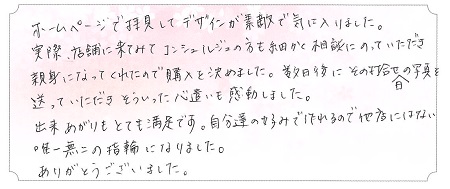 ホームページで拝見してデザインが素敵で気に入りました。
実際、店舗に来てみてコンシェルジュの方も細かく相談にのっていただき
親身になってくれたので購入を決めました。数日後にその打合せの日写真を
送っていただきそういった心遣いも感動しました。
出来あがりもとても満足です。自分達の好みで作れるので他店にはない
唯一無二の指輪になりました。
ありがとうございました。